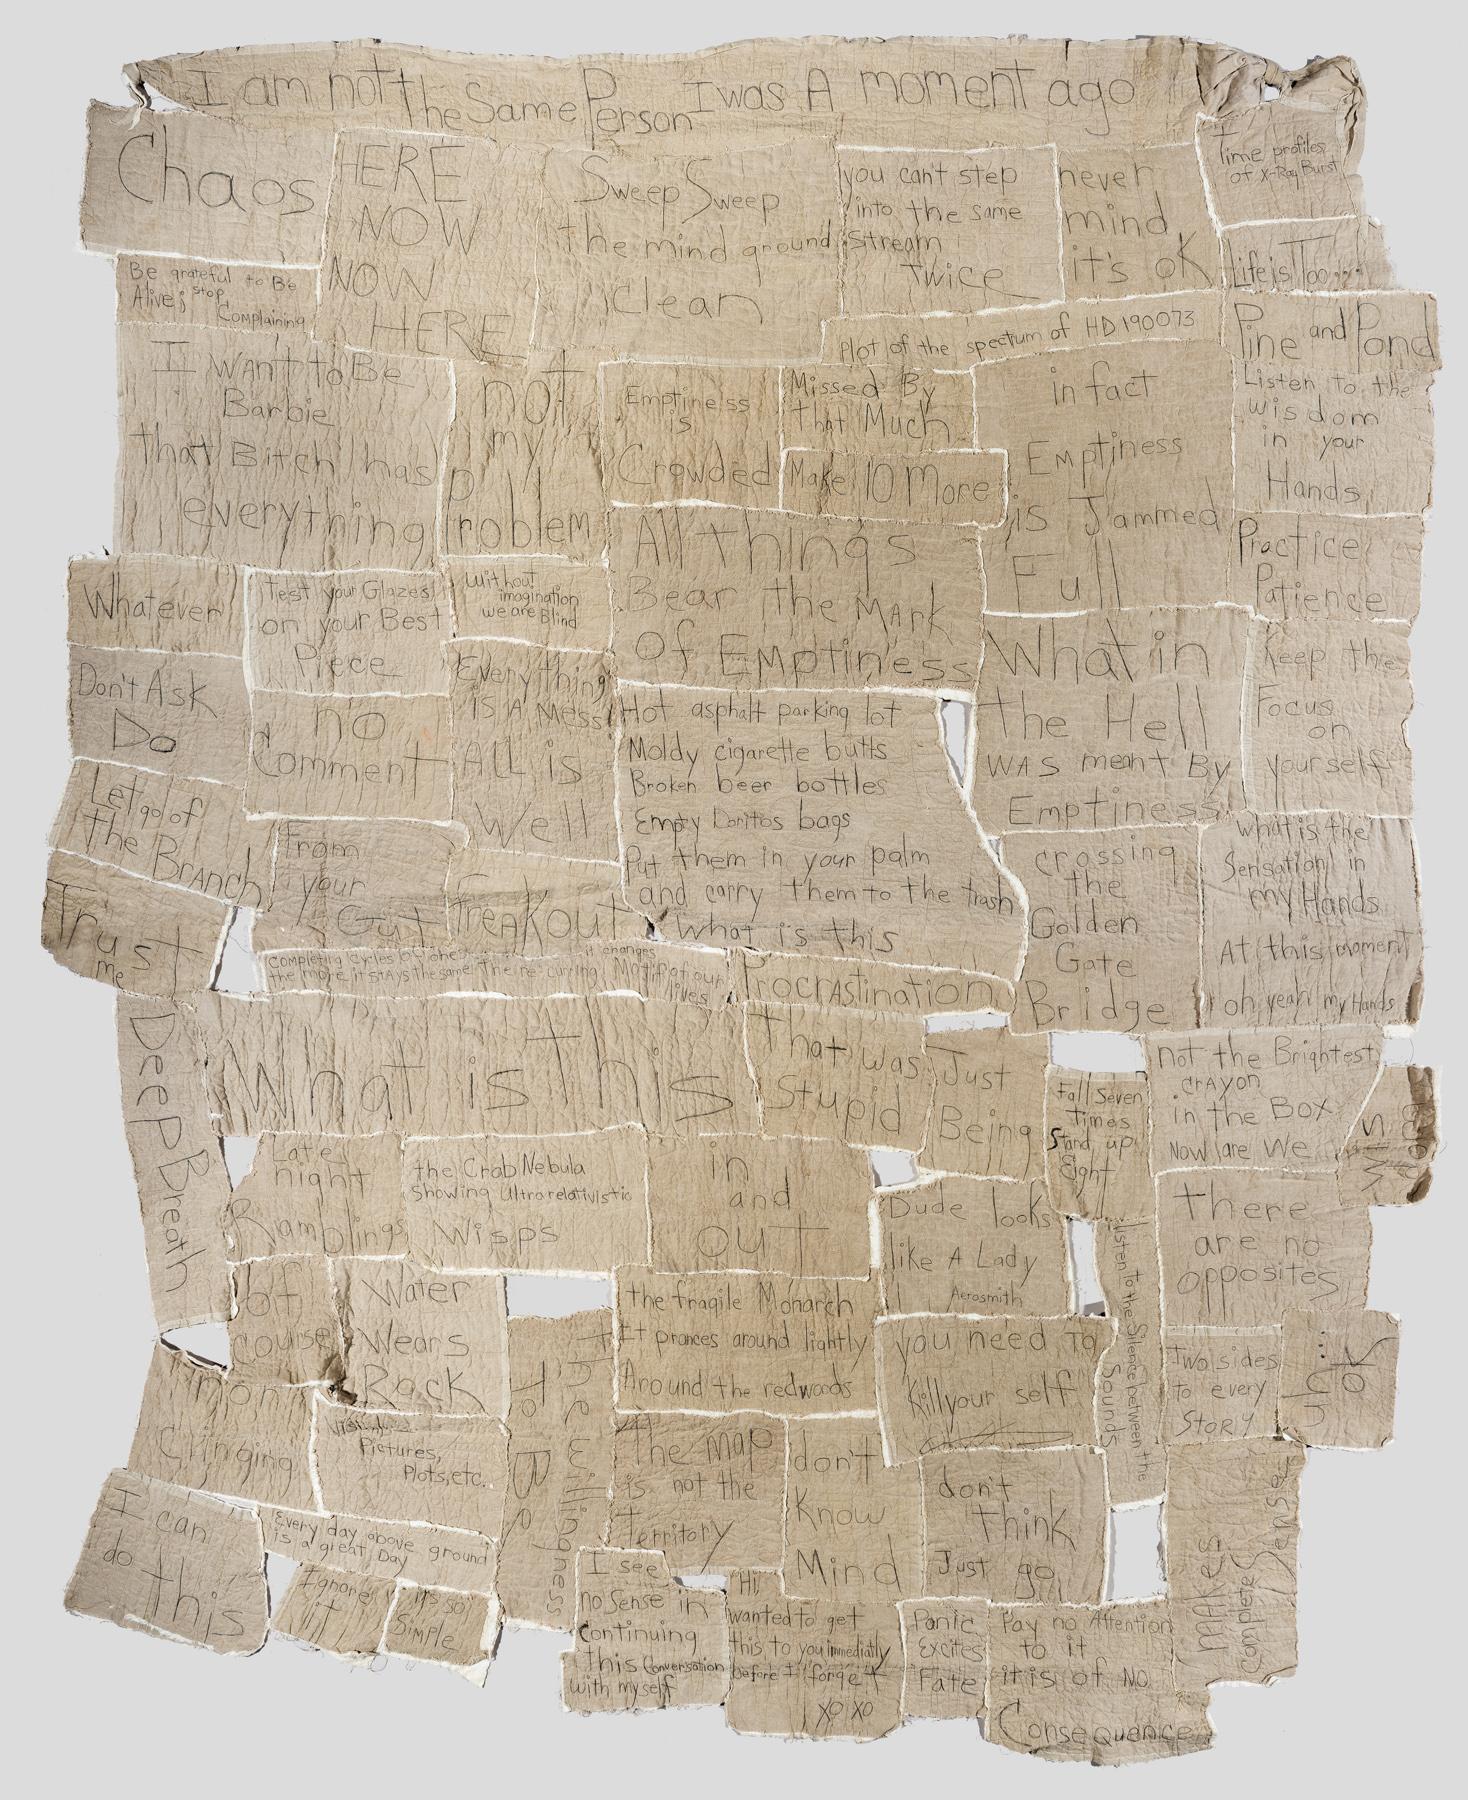 I am not the Same Person I was A moment ago
Chaos
HERE
NOW
NOW
HERE
Sweep Sweep
the mind ground
clean
you can't step
into the same
stream
twice
never
mind
it's oK
Time profiles
of X-Ray Burst
Be grateful to Be
Alive; stop
Complaining
Life is Too...
plot of the spectum of HD190073
Pine and Pond
I want to Be
Barbie
that Bitch has
everything
not
my
problem
Emptiness
is
Crowded
Missed By
that Much
Make 10 More
in fact
Emptiness
is Jammed
Full
Listen to the
wisdom
in your
Hands
Practice
Patience
All things
Bear the MArk
of Emptiness
Whatever
Test your Glazes
on your Best
Piece
without
imagination
we are Blind
Don't Ask
Do
no
Comment
Every thing
is A Mess
ALL is
Well
Hot asphalt parking lot
Moldy cigarette butts
Broken beer bottles
Empty Doritos bags
Put them in your palm
and carry them to the trash
what is this
What in
the Hell
was meant By
Emptiness
Keep the
Focus
on
yourself
Let go of
the BrAnch
From
your
Gut
freakout
crossing
the
Golden
Gate
Bridge
what is the
Sensation in
my Hands
At this moment
oh yeah my Hands
Trust
me
completing cycles
it changes
the more it stAys the same The re-curing Motif of our
lives
ProcrAstination
DeeP Breath
What is this
That was
Stupid
Just
Being
Fall Seven
times
Stand up
Eight
not the Brightest
crAyon
in the Box
Now are We
Late
night
Ramblings
the Crab Nebula
Showing Ultrarelativistic
Wisps
in
and
out
Dude looks
like A Lady
Aerosmith
Listen to the Silence between the
Sounds
there
are no
opposites
of
course
Water
Wears
Rock
the fragile Monarch
It prances around lightly
Around the redwoods
you need to
Kill your self
Two sides
to every
Story
uh...
oK
Clinging
Pictures,
Plots, etc.
The Willingness
To Be
The Map
is not the
territory
don't
Know
Mind
don't
think
Just go
MAKes
Complete Sense
I can
do this
Every day above ground
is a great Day
Ignore
it
it's so
Simple
I see
no Sense in
Continuing
this Conversation
with myself
Hi,
wanted to get
this to you immediatly
before I forget
xo xo
Panic
Excites
Fate
Pay no Attention
to it
it is of No
Consequence